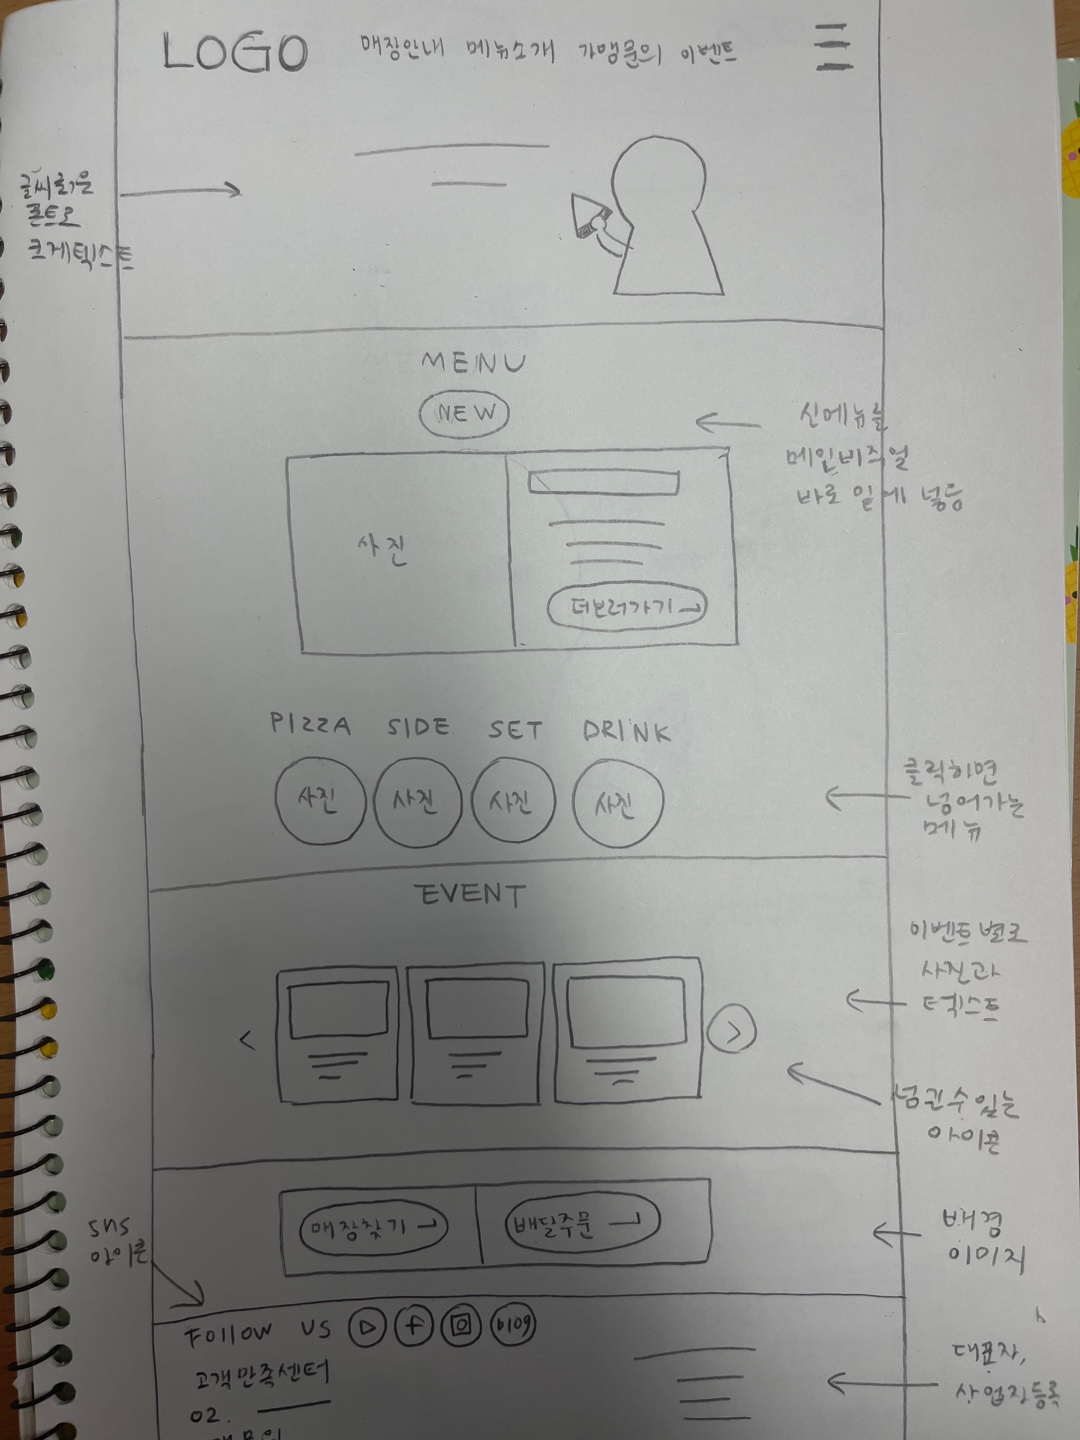 LOGO 매장안내 메뉴소개 가맹문의 이벤트
글씨
폰트로
크게텍스트
MENU
NEW
신메뉴를
메인비주얼
바로 밑에 넣음
사진
더보러가기
PIZZA SIDE SET DRINK
사진 사진 사진 사진
클릭하면
넘어가는
메뉴
EVENT
이벤트별로
사진과
텍스트
< >
넘길수있는
아이콘
매장찾기 배달주문
배경
이미지
sns
아이콘
Follow US f blog
고객만족센터
02.
대표자,
사업자등록